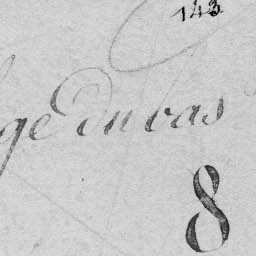 143
ge du bas
8